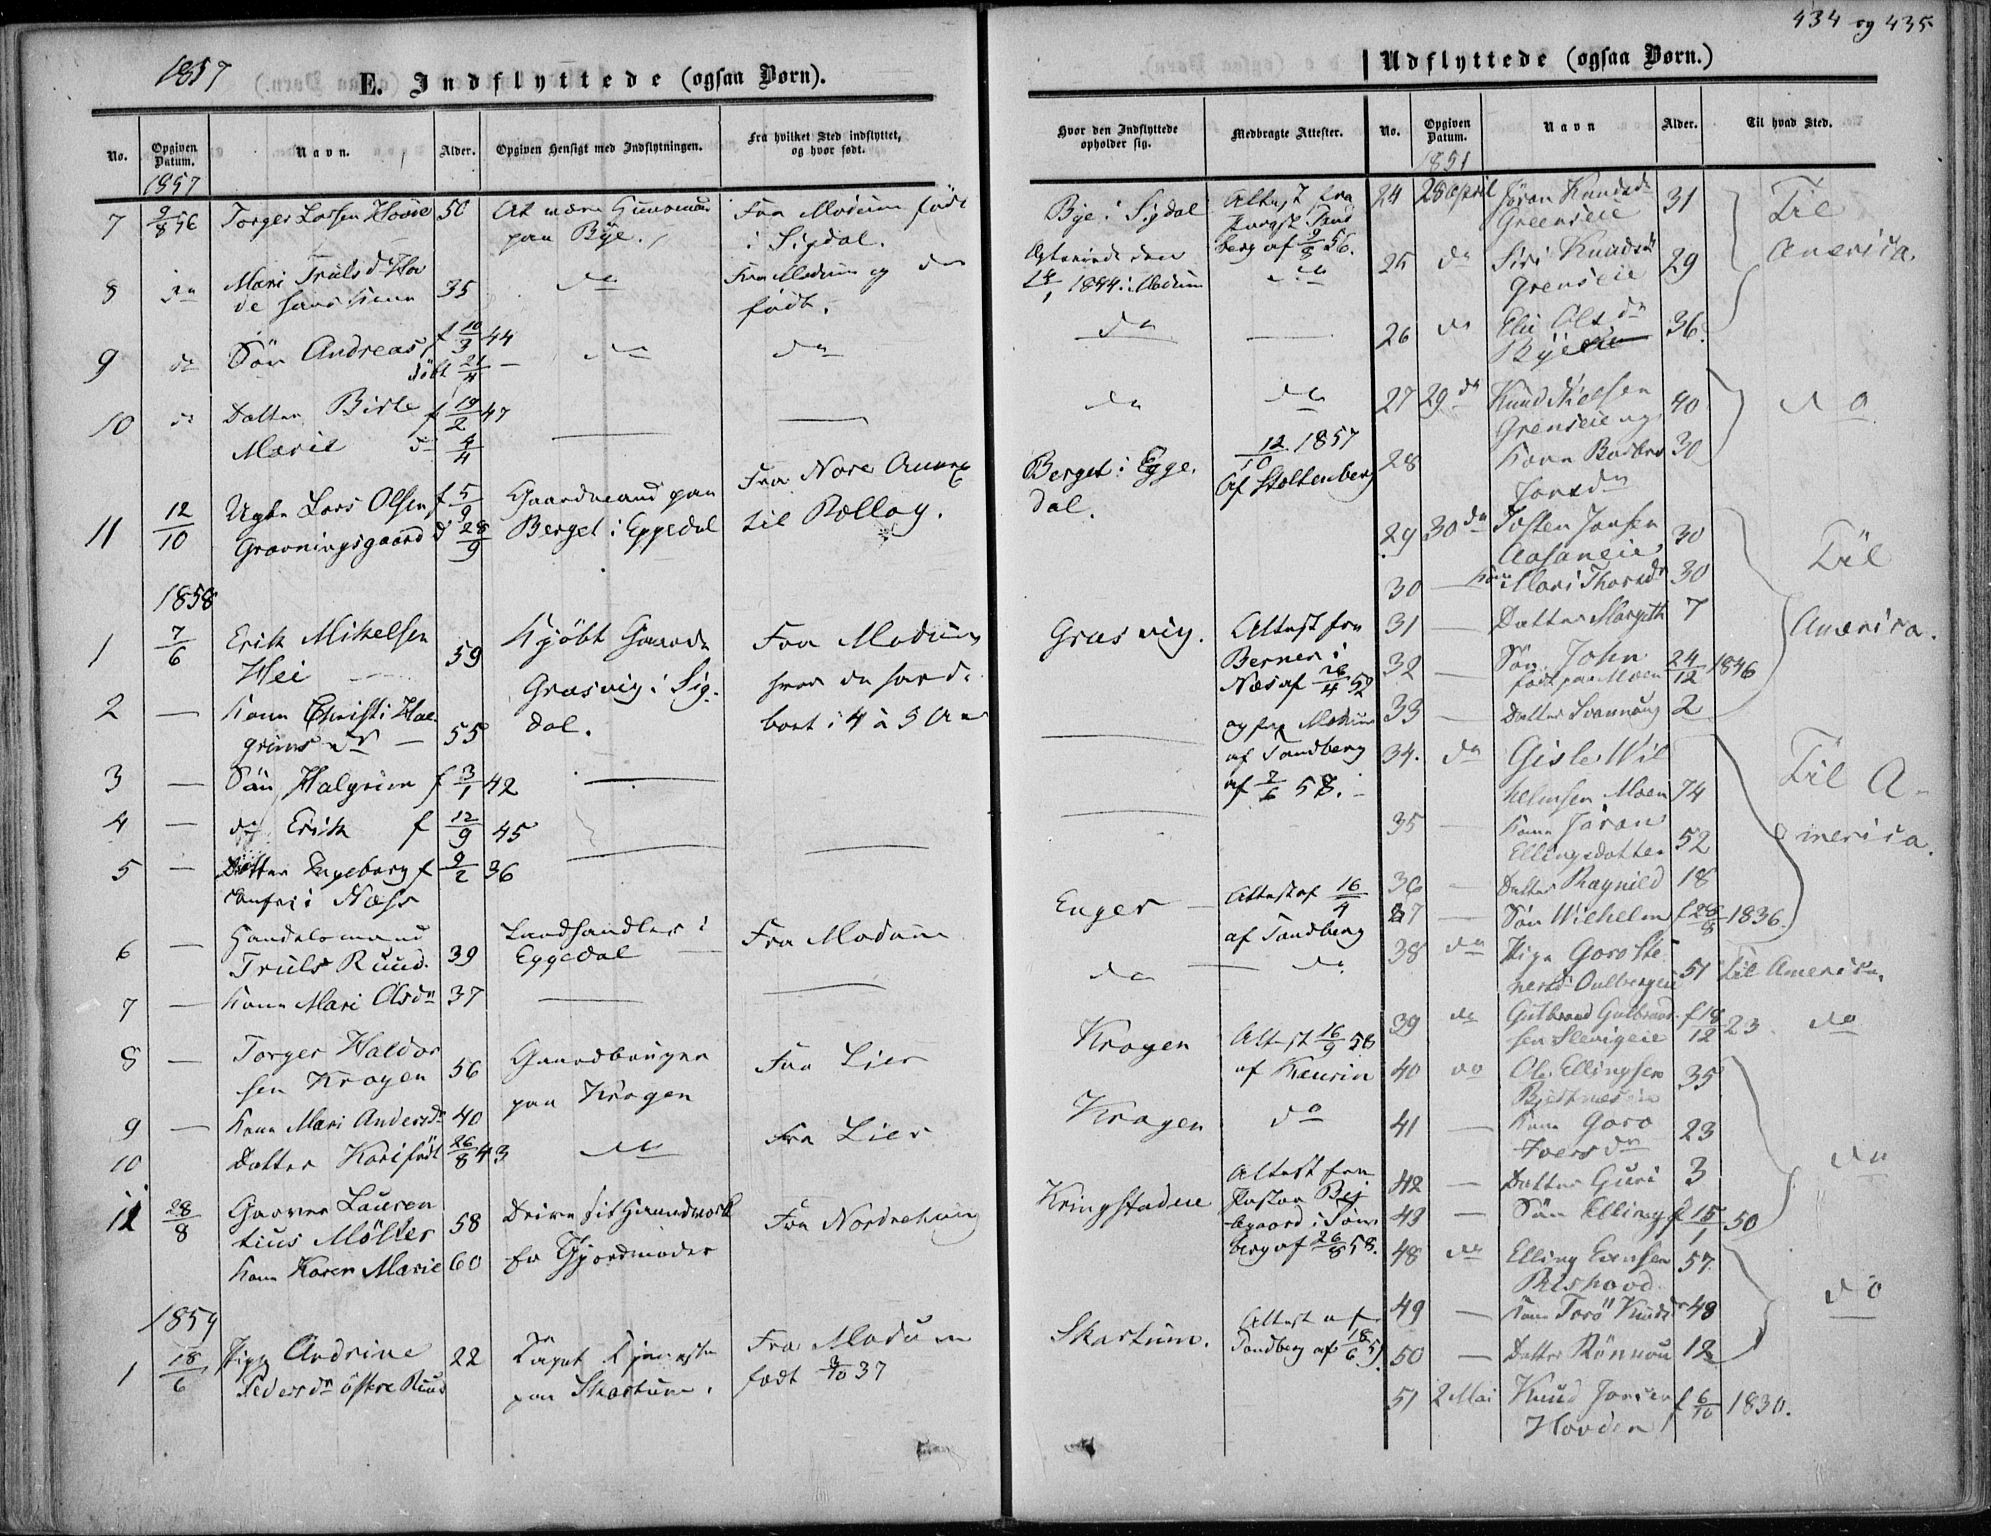 434 og 435
1857
E. Indflyttede (ogsaa Børn).
No.
Opgiven Datum.
Navn.
Alder.
Opgiven Hensigt med Indflytningen.
Fra hvilket Sted indflyttet, og hvor født.
Hvor den Indflyttede opholder sig.
Medbragte Attester.
1857
7 9/8 56 Torger Larsen Hovde 50 At være Huusmand Fra Modum født Bye i Sigdal Attest fra
paa Bye. i Sigdal.
berg af 9/8 56.
8 do Mari Trulsd. Hov 35 do Fra Modum og do
de hans Kone født. 14/1 1844 i Modum do
9 do Søn Andreas f 10/3 44 do do do
døbt 21/4
10 do Datter Birte f 19/2 47 do do
Marie d 4/4
11 12/10 Ugte Lars Olsen f 5/9 Gaardmand paa Fra Nore Annex Berget i Egge 12/10 1857
Gravningsgaard d 28/9 Berget i Eggedal til Rollag. dal. Af Stoltenberg
1858
1 7/6 Erik Mikelsen 59 Kjøbt Gaarde Fra Modum Græsvig. Attest fra
Hei Græsvig i Sig- hvor de havde Berner i
2 — Kone Christi Hal- 55 dal. boet i 4 à 5 Aar Næs af 26/4 52
grimsdr og fra Modum
af Tandberg
3 — Søn Halgrim f 3/1 42 af 7/6 58.
4 — do Erik f 12/9 45
5 — Datter Ingeborg f 9/2 36
Næss
6 — Handelsmand Landhandler i Fra Modum Enger Attest af 16/4
Truls Ruud. 39 Eggedal af Tandberg
7 — Kone Mari Olsdr 37 do do
8 — Torger Haldor Gaardbruger Fra Lier Kragen Attest 16/9 58
sen Kragen 56 paa Kragen af Kaurin
9 — Kone Mari Andersdr 40 Kragen do
10 Datter Kari født 26/8 43 do Fra Lier
11 28/8 Garver Lauren Drive sit Haandverk Fra Nordrehoug Kringstadene Attest fra
tius Möller 58 Pastor
Kone Karen Marie 60 berg af 26/8 58.
1859
1 18/6 Pige Andrine 22 Tjeneste Fra Modum Skartum. Attest af
Pedersdr östre Ruud paa Skartum. født 3/10 37 Tandberg af 18/6 59
Udflyttede (ogsaa Børn.)
No.
Opgiven Datum.
Navn
Alder.
Til hvad Sted.
1851
24 28 April Jøran Knudsdr 31 Til
Greenseie America.
25 do Siri Knudsdr 29
Grenseie
26 do Eli Olsdr 36.
Byeeie
27 29 do Knud Nielsen 40 do
Grenseie og
28 Kone Barbro 30
Joresdr
29 30 do Tosten Jonsen 30 Til
Aasaneie
30 — Kone Mari Thoresdr 30
31 — Datter Margith 7 America.
32 — Søn John 24/12 1846
født paa Moen
33 — Datter Svannaug 2
34. do Gisle Wil Til A-
helmsen Moen 74
35 — Kone Jøran merica.
Ellingsdatter 52
36 — Datter Ragnild 18
37 — Søn Wilhelm f 28/8 1836.
38 do Pige Goro Ste 51 Til America.
39 do Gulbrand Gulbrand- f 18/12 23 do
sen
40 do Ole Ellingsen 35
41 — Kone Goro 23
Iversdr do
42 — Datter Guri 3
43 — Søn Elling f 15/1 50
48 do Elling Evensen 57.
do
49 — Kone Torö Knudsdr 48
50 — Datter Rönnou 12
51 2 Mai Knud Jonsen f 6/10 1830.
Hovden